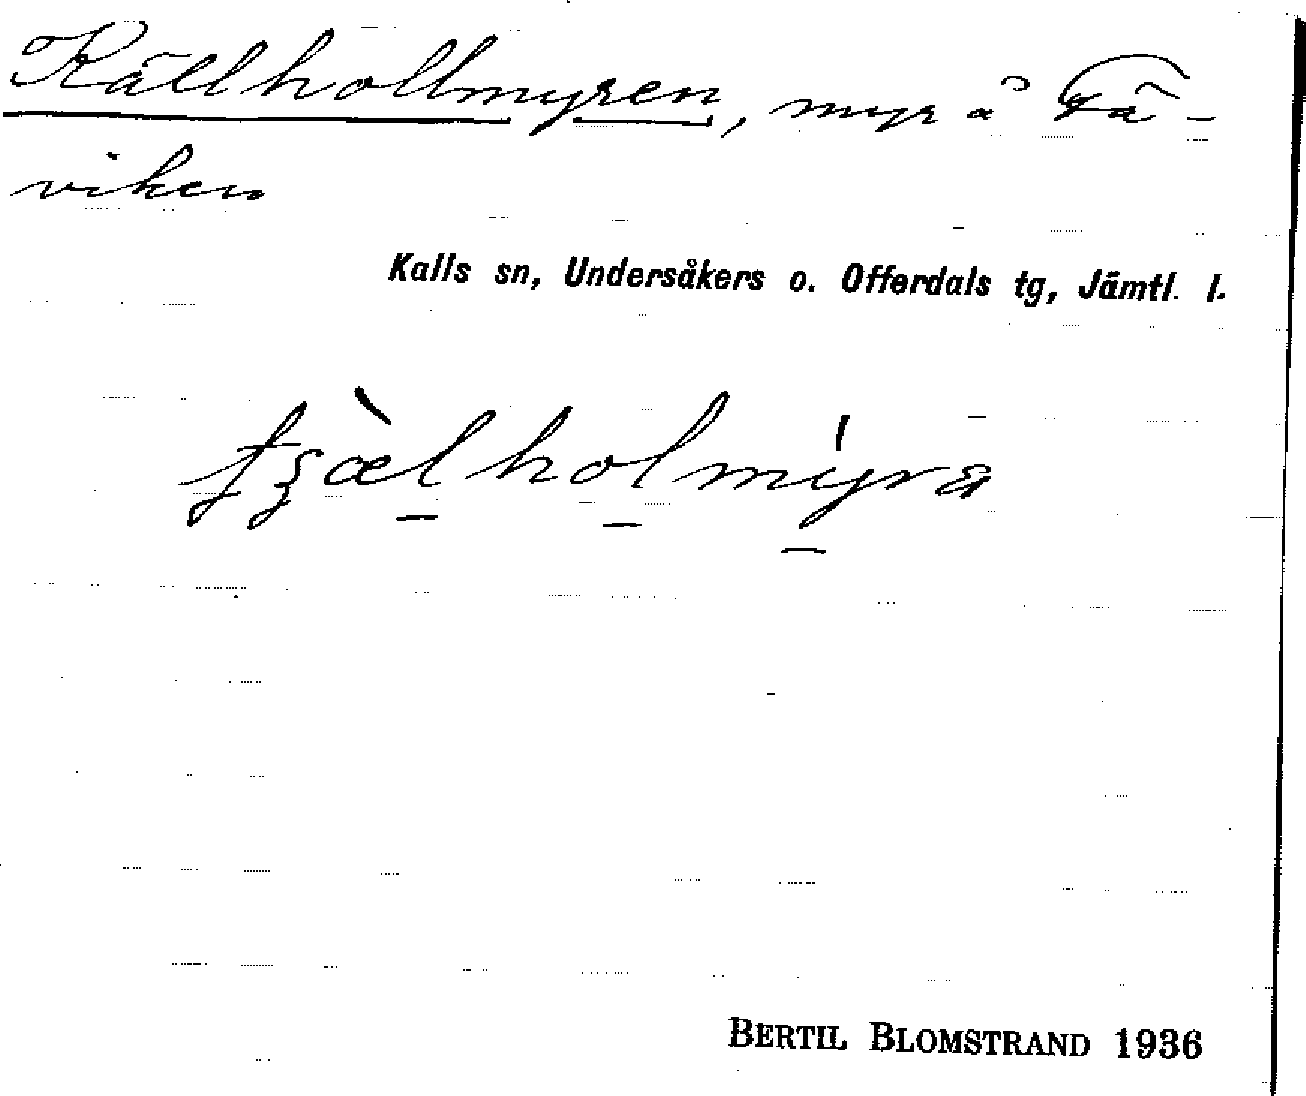 Källhollmyren, myr å Tä-
viken
Kalls sn, Undersåkers o. Offerdals tg, Jämtl. l.
BERTIL BLOMSTRAND 1936